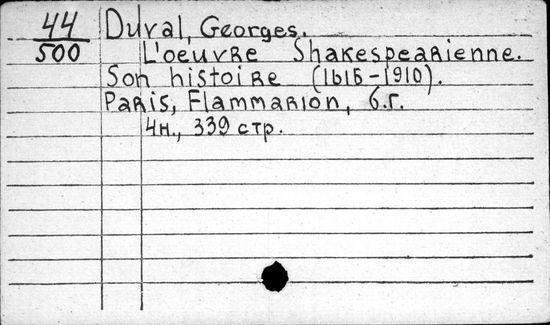 44 Duval, Georges.
500 L'oeuvre Shakespearienne.
Son histoire (1616-1910).
Paris, Flammarion, б.г.
4н., 339 стр.